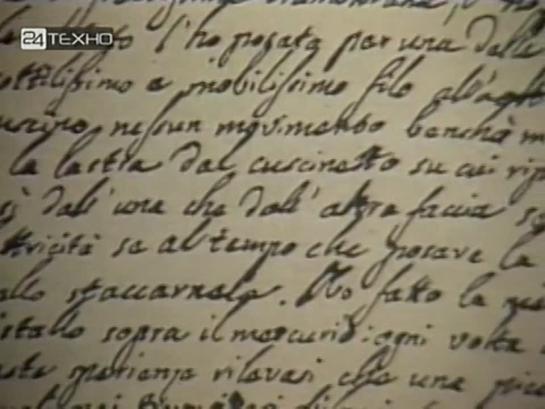 24 ТЕХНО
l'ho posata per una delle
sottilissimo e mobilissimo filo all'ago
nessun movimento benchè
la lastra dal cuscinetto su cui rip
sì dall'una che dall'altra faccia
ttricità se al tempo che posava la
allo staccarnela. Ho fatto la
istallo sopra il mercurio: ogni volta
rilevasi che una picc